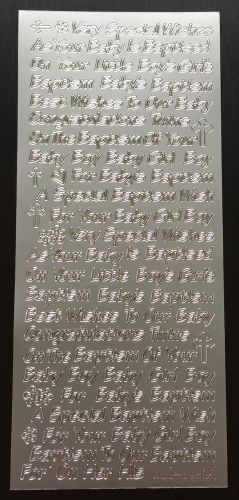 Very Special Wishes
As Your Baby Is Baptised
On Your Little Boy's Girl's
Baptism Baby's Baptism
Best Wishes To Our Baby
Congratulations Twins
On The Baptism Of Your
Baby Boy Baby Girl Boy
For Baby's Baptism
A Special Baptism Wish
For Your Baby Girl Boy
Very Special Wishes
As Your Baby Is Baptised
On Your Little Boy's Girl's
Baptism Baby's Baptism
Best Wishes To Our Baby
Congratulations Twins
On The Baptism Of Your
Baby Boy Baby Girl Boy
For Baby's Baptism
A Special Baptism Wish
For Your Baby Girl Boy
Baptism To Our Baptism
For On Her His